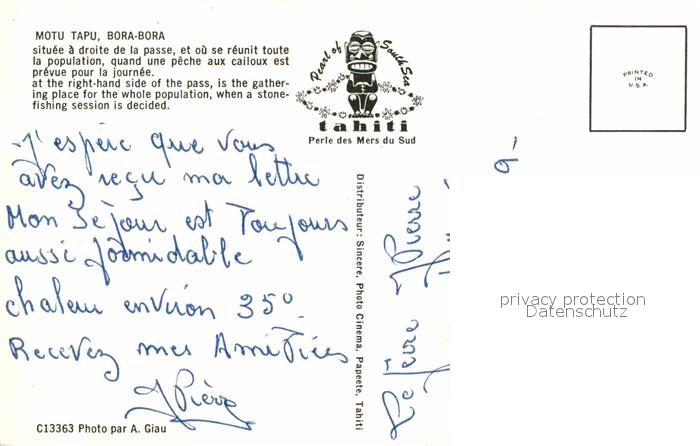 MOTU TAPU, BORA-BORA
située à droite de la passe, et où se réunit toute
la population, quand une pêche aux cailloux est
prévue pour la journée.
at the right-hand side of the pass, is the gather-
ing place for the whole population, when a stone-
fishing session is decided.
Pearl of South Sea
tahiti
Perle des Mers du Sud
PRINTED
IN
U.S.A.
-J'espère que vous
avez reçu ma lettre
Mon Séjour est Toujours
aussi formidable
chaleur environ 35°
Recevez mes Amitiées
JPierre
C13363 Photo par A. Giau
Distributeur: Sincere, Photo Cinema, Papeete, Tahiti
JPierre
privacy protection
Datenschutz